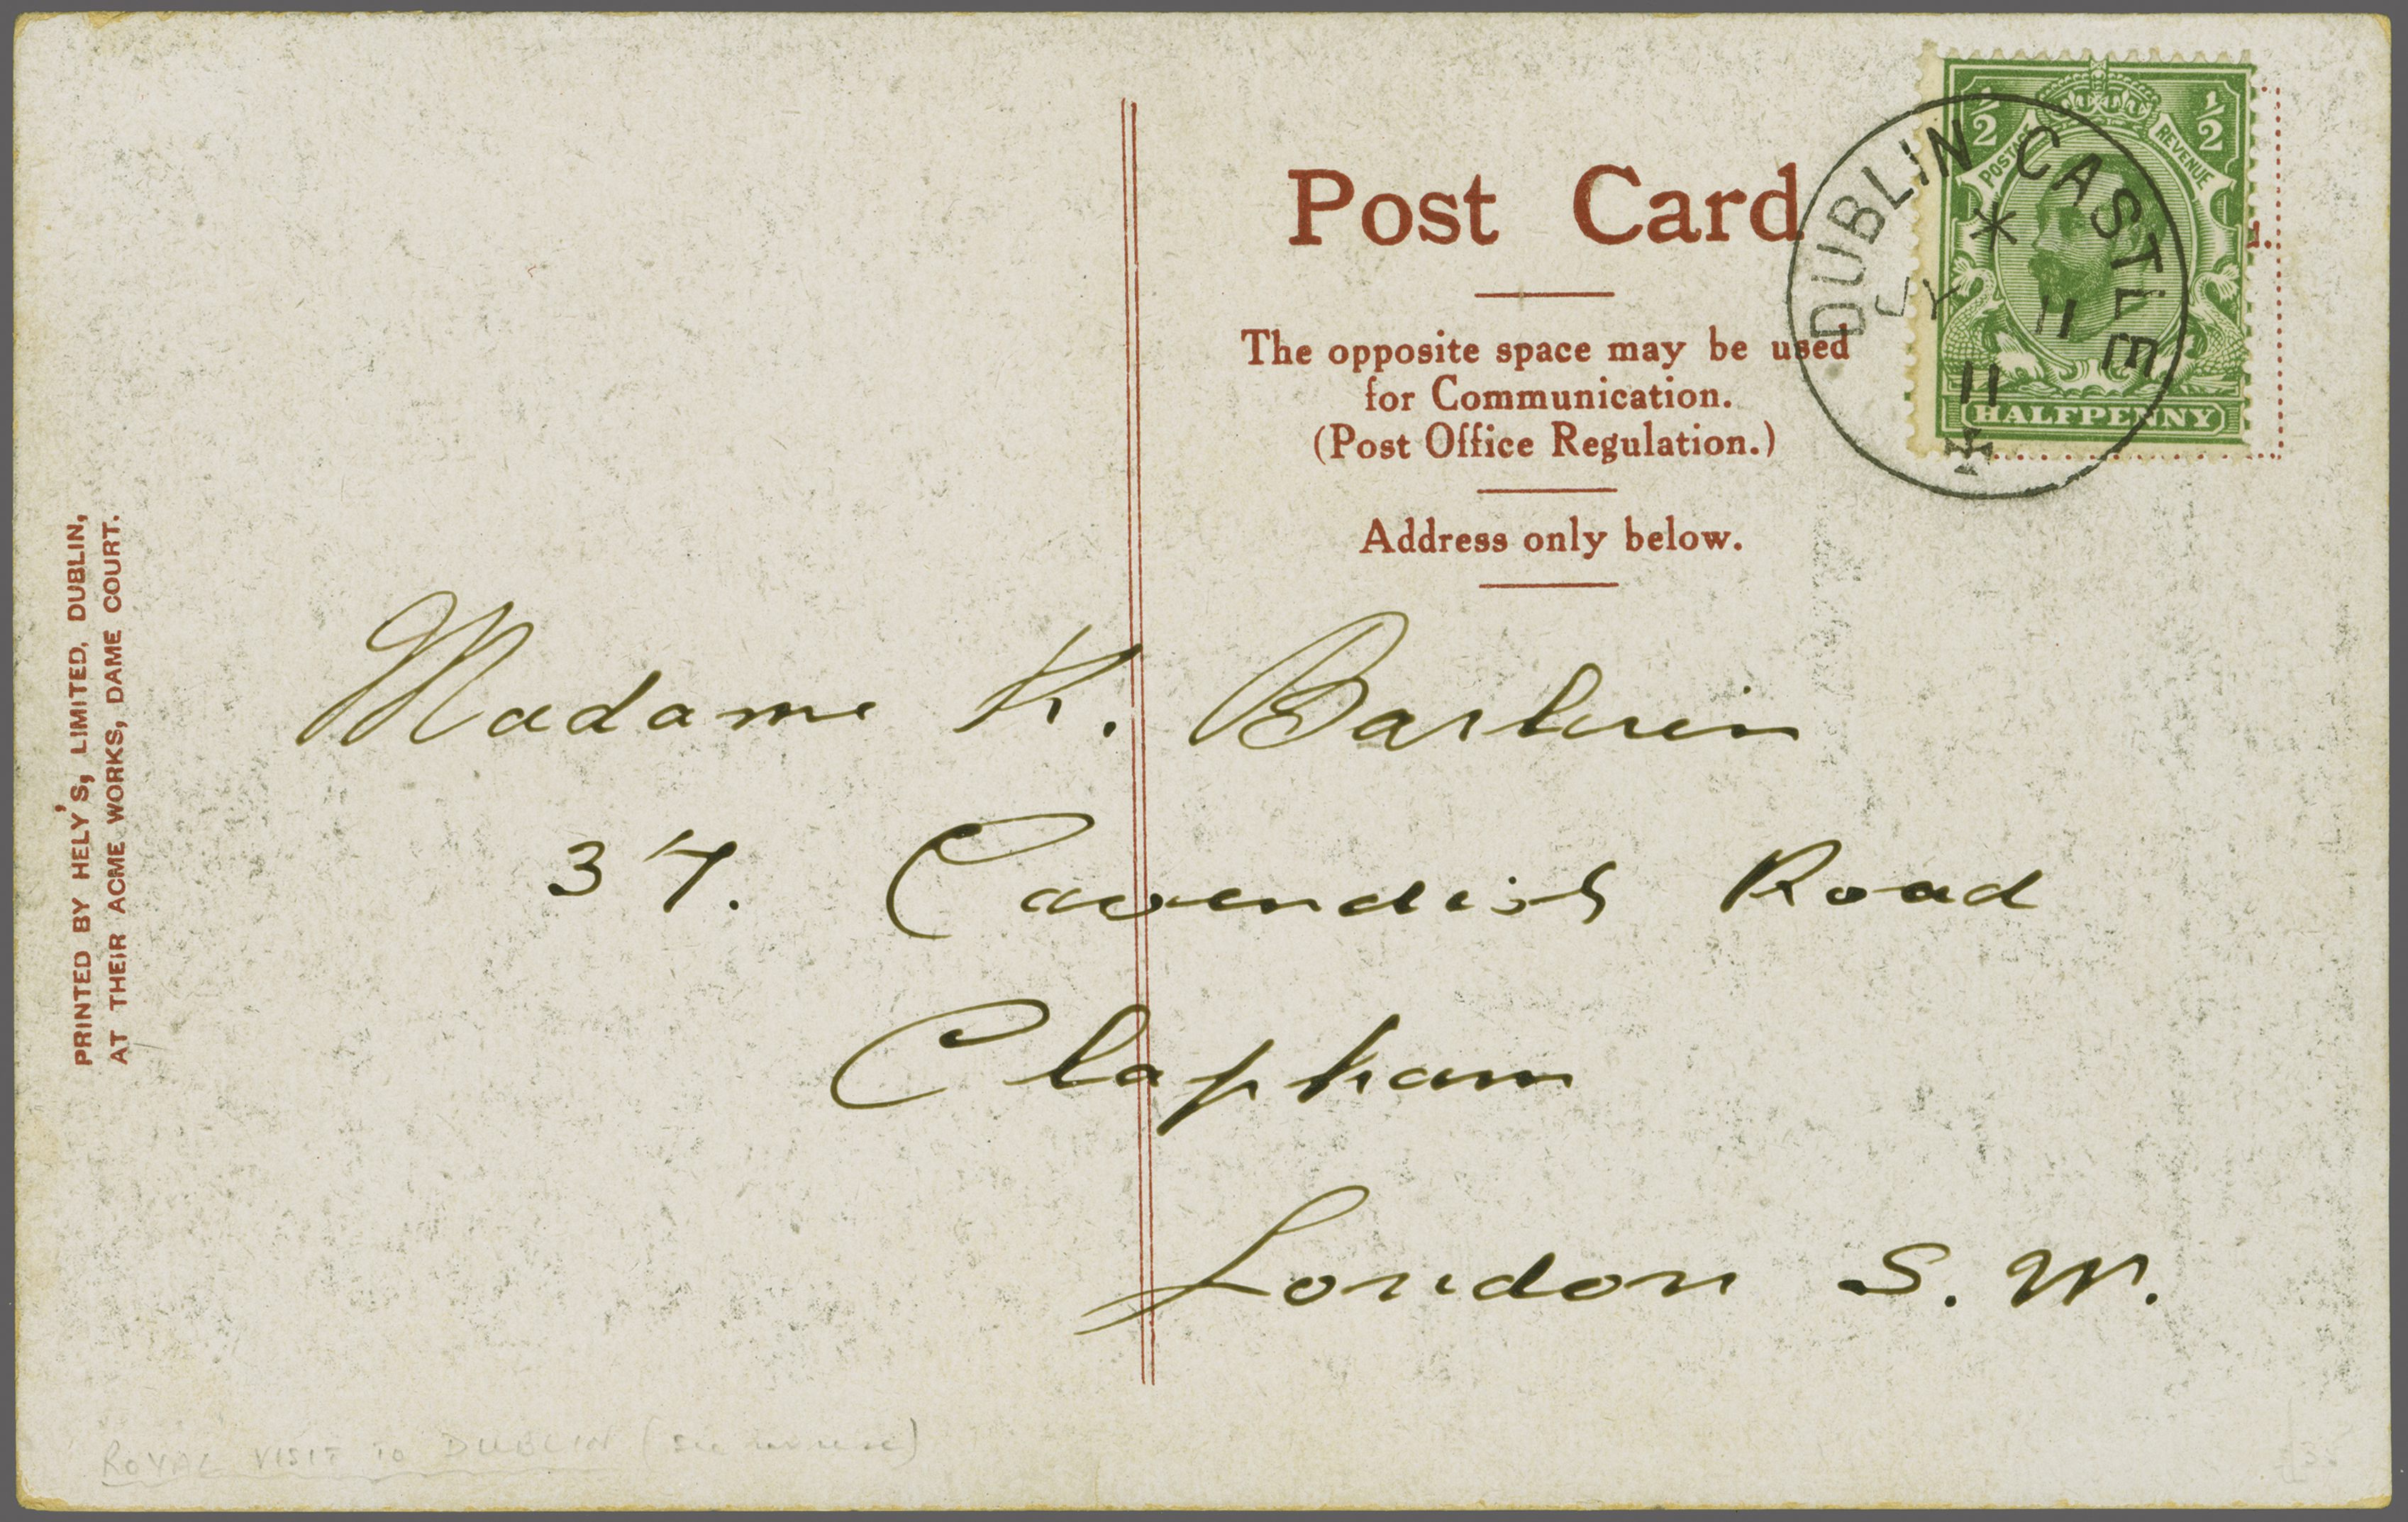 Post Card
The opposite space may be used
for Communication.
(Post Office Regulation.)
Address only below.
½ ½
POSTAGE REVENUE
HALFPENNY
DUBLIN CASTLE
11
11
PRINTED BY HELY'S, LIMITED, DUBLIN,
AT THEIR ACME WORKS, DAME COURT.
Madame K.
37. Cavendish Road
Clapham
London S. W.
ROYAL VISIT TO DUBLIN (see reverse)